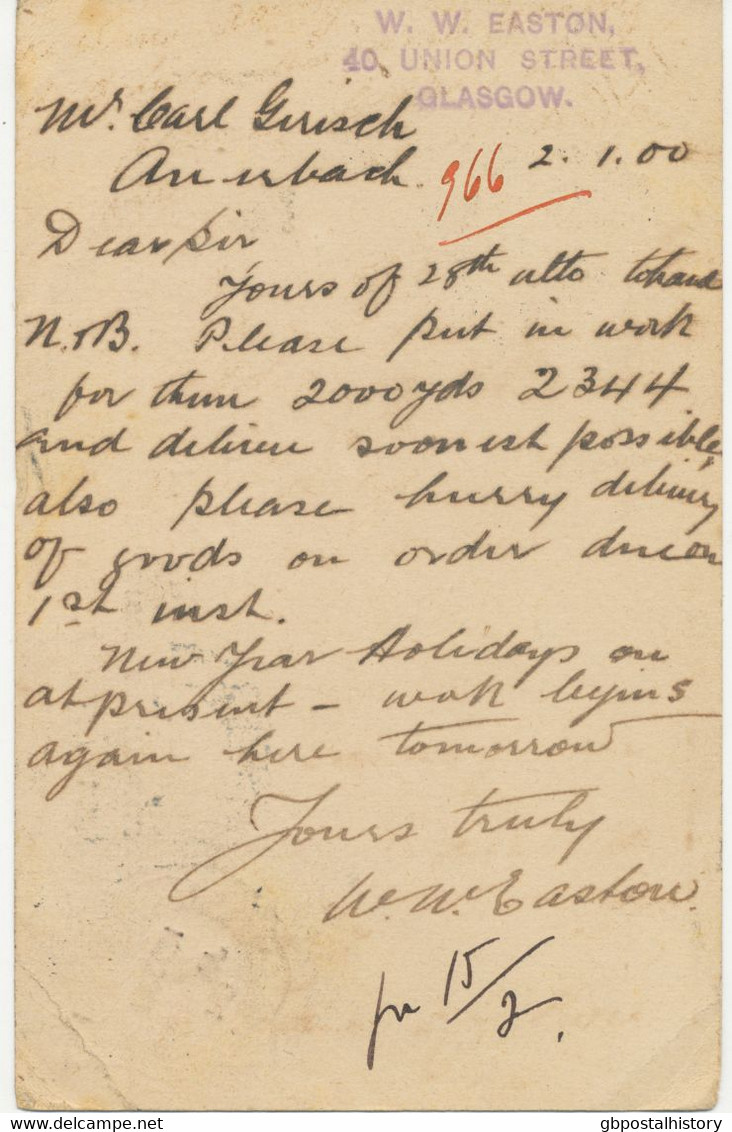 W. W. EASTON,
40, UNION STREET,
GLASGOW.
Mr. Carl Girisch
Auerbach. 966 2.1.00
Dear Sir
Yours of 28th ulto to hand
N. & B. Please put in work
for them 2000 yds 2344
and deliver soonest possible,
also please hurry delivery
of goods on order due on
1st inst.
New Year Holidays on
at present - work begins
again here tomorrow
Yours truly
W. W. Easton.
15/2.
gbpostalhistory